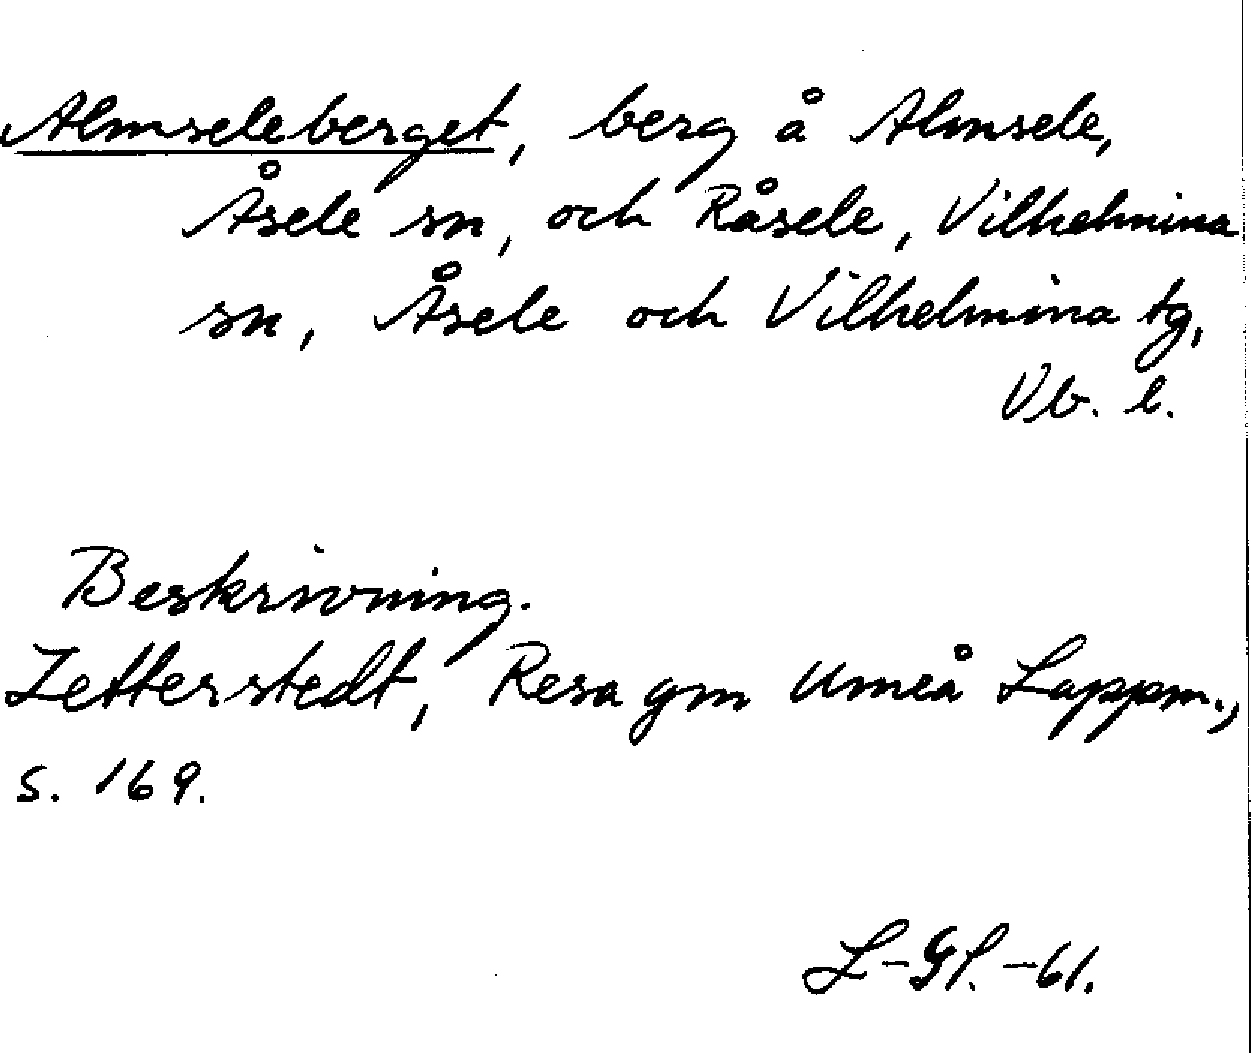 Almseleberget, berg å Almsele,
Åsele sn, och Råsele, Vilhelmina
sn, Åsele och Vilhelmina tg,
Vb. l.
Beskrivning.
Zetterstedt, Resa gm Umeå Lappm.,
s. 169.
L-Gl. -61.